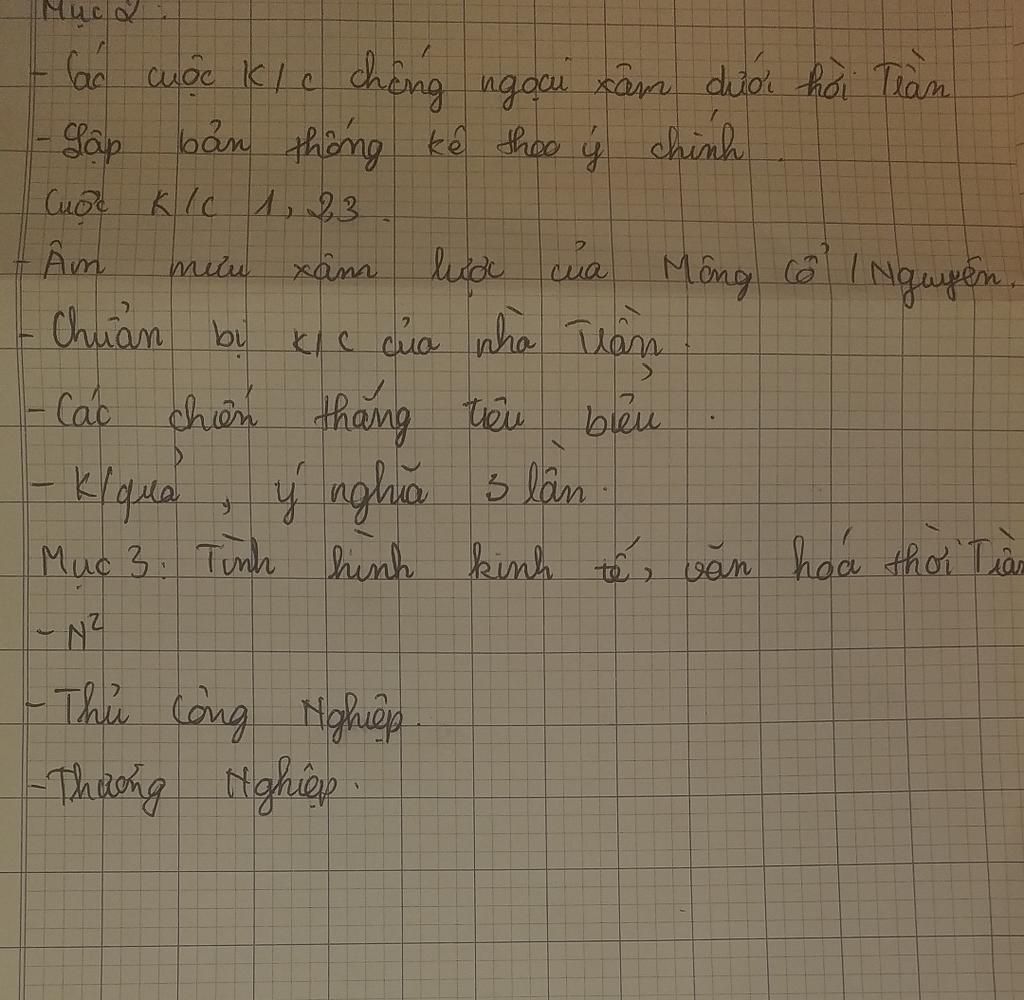 Mục 2:
- Các cuộc K/c chống ngoại xâm dưới thời Trần
- Lập bản thống kê theo ý chính.
Cuộc K/c 1, 2,3.
- Âm mưu xâm lược của Mông Cổ / Nguyên.
- Chuẩn bị K/c của nhà Trần.
- Các chiến thắng tiêu biểu.
- K/quả, ý nghĩa 3 lần.
Mục 3: Tình hình kinh tế, văn hoá thời Trần
- N²
- Thủ Công Nghiệp.
- Thương Nghiệp.